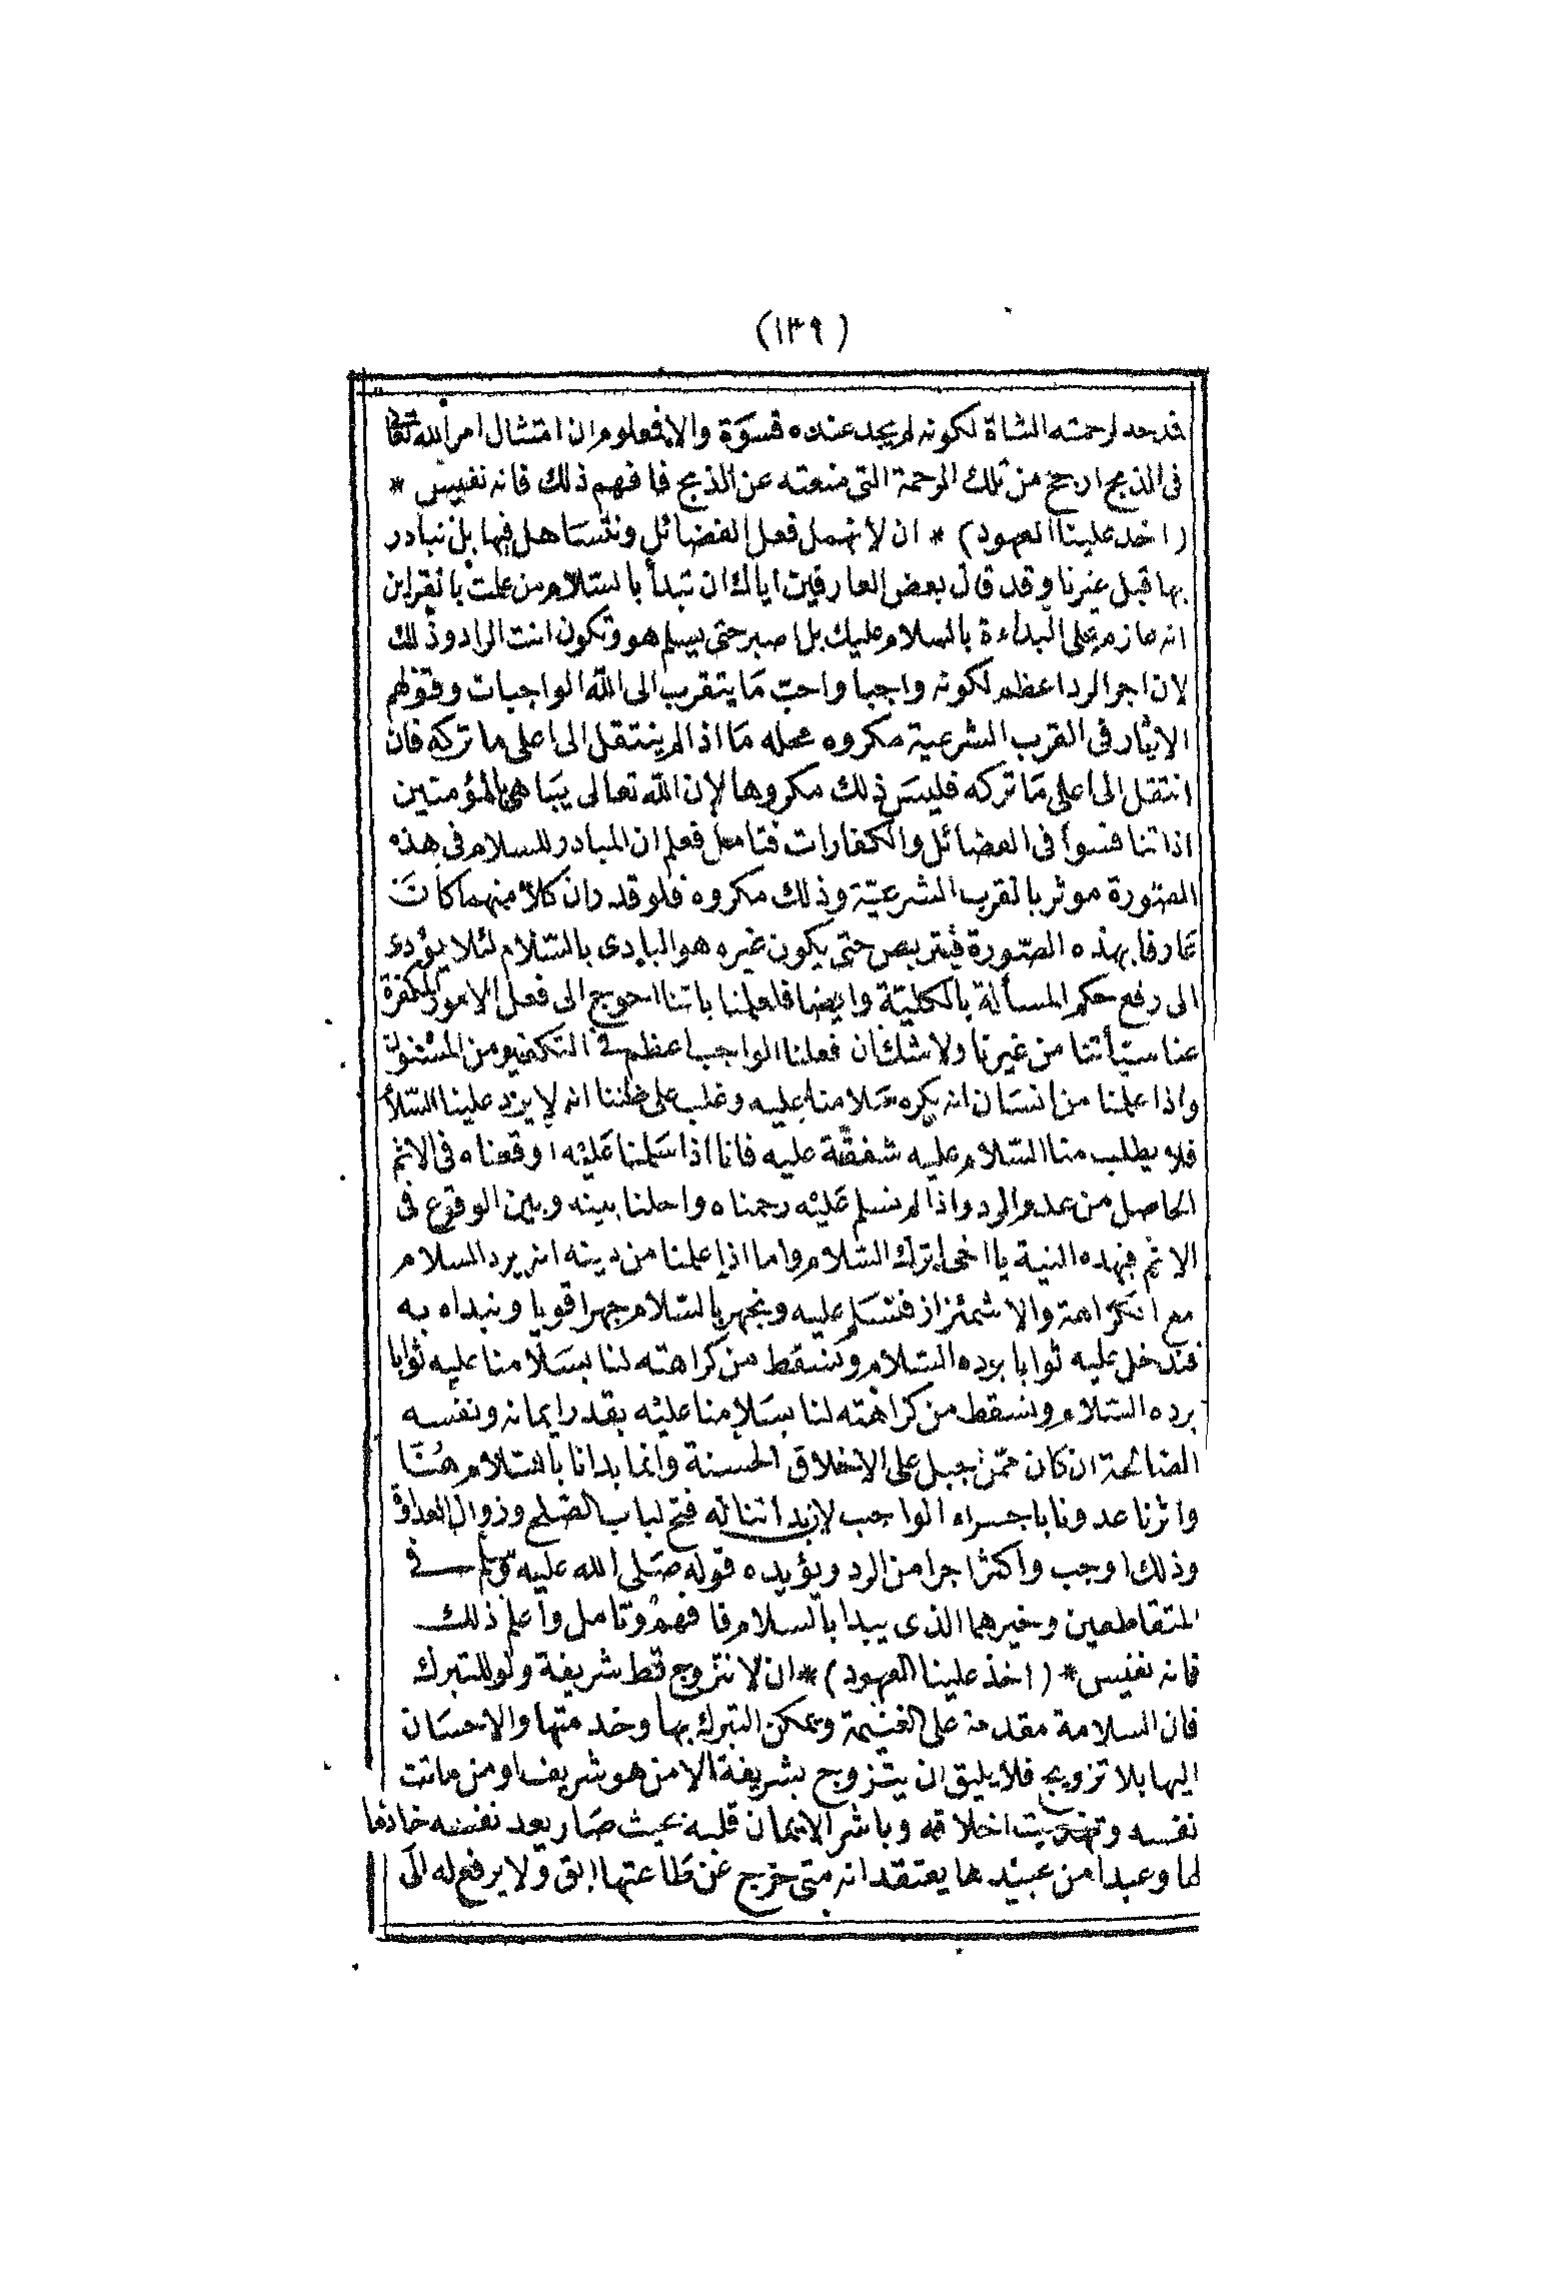 (١٣٩)
قدحد لرحمته الشاة لكونه لم يجد عنده قسوة والا فمعلوم ان امتثال امر الله تعالى
فى الذبح ارجح من تلك الرحمة التى منعته عن الذبح فافهم ذلك فانه نفيس *
(اخذ علينا العهود) * ان لا نهمل فعل الفضائل ونتساهل فيها بل نبادر
بها قبل غيرنا وقد قال بعض العارفين اياك ان تبدأ بالسلام من علمت بالقراين
انه عازم على البداءة بالسلام عليك بل اصبر حتى يسلم هو وتكون انت الراد وذلك
لان اجر الرد اعظم لكونه واجبا واحب ما يتقرب الى الله الواجبات وقولهم
الايثار فى القرب الشرعية مكروه محله ما اذا لم ينتقل الى اعلى ما تركه فان
انتقل الى اعلى ما تركه فليس ذلك مكروها لان الله تعالى يباهى بالمؤمنين
اذا تنافسوا فى الفضائل والكفارات فتامل فعلم ان المبادر للسلام فى هذه
الصورة موثر بالقرب الشرعية وذلك مكروه فلو قدر ان كلا منهما كان
عارفا بهذه الصورة فيتربص حتى يكون غيره هو البادى بالسلام لئلا يؤدى
الى رفع حكم المسألة بالكلية وايضا فلعلمنا باننا احوج الى فعل الامور المكفرة
عنا سيأتنا من غيرنا ولا شك ان فعلنا الواجب اعظم فى التكفير من المسنون
واذا علمنا من انسان انه يكره سلامنا عليه وغلب على ظننا انه لا يرد علينا السلا
فلا يطلب منا السلام عليه شفقة عليه فانا اذا سلمنا عليه اوقعناه فى الاثم
الحاصل من عدم الرد واذا لم نسلم عليه رحمناه واحلنا بينه وبين الوقوع فى
الاثم فبهذه النية يا اخى اترك السلام واما اذا علمنا من دينه انه يرد السلام
مع الكراهة والاشمئزاز فنسلم عليه ونجهر بالسلام جهرا قويا ونبداه به
فندخل عليه ثوابا برده السلام ونسقط من كراهته لنا بسلامنا عليه ثوابا
برده السلام ونسقط من كراهته لنا بسلامنا عليه بقدر ايمانه ونفسه
الصالحة ان كان ممن جبل على الاخلاق الحسنة وانما بدانا بالسلام هنا
واثرنا عدونا باجراء الواجب لان بداتنا له فتح لباب الصلح وزوال العداوة
وذلك اوجب واكثر اجرا من الرد ويؤيده قوله صلى الله عليه وسلم فى
المتقاطعين وخيرهما الذى يبدا بالسلام فافهم وتامل واعلم ذلك
فانه نفيس * (اخذ علينا العهود) * ان لا نتزوج قط شريفة ولو للتبرك
فان السلامة مقدمة على الغنيمة ويمكن التبرك بها وخدمتها والاحسان
اليها بلا تزويج فلا يليق ان يتزوج بشريفة الا من هو شريف او من ماتت
نفسه وتهذبت اخلاقه وباشر الايمان قلبه بحيث صار يعد نفسه خادما
لها وعبدا من عبيدها يعتقد انه متى خرج عن طاعتها ابق ولا يرفع له الى